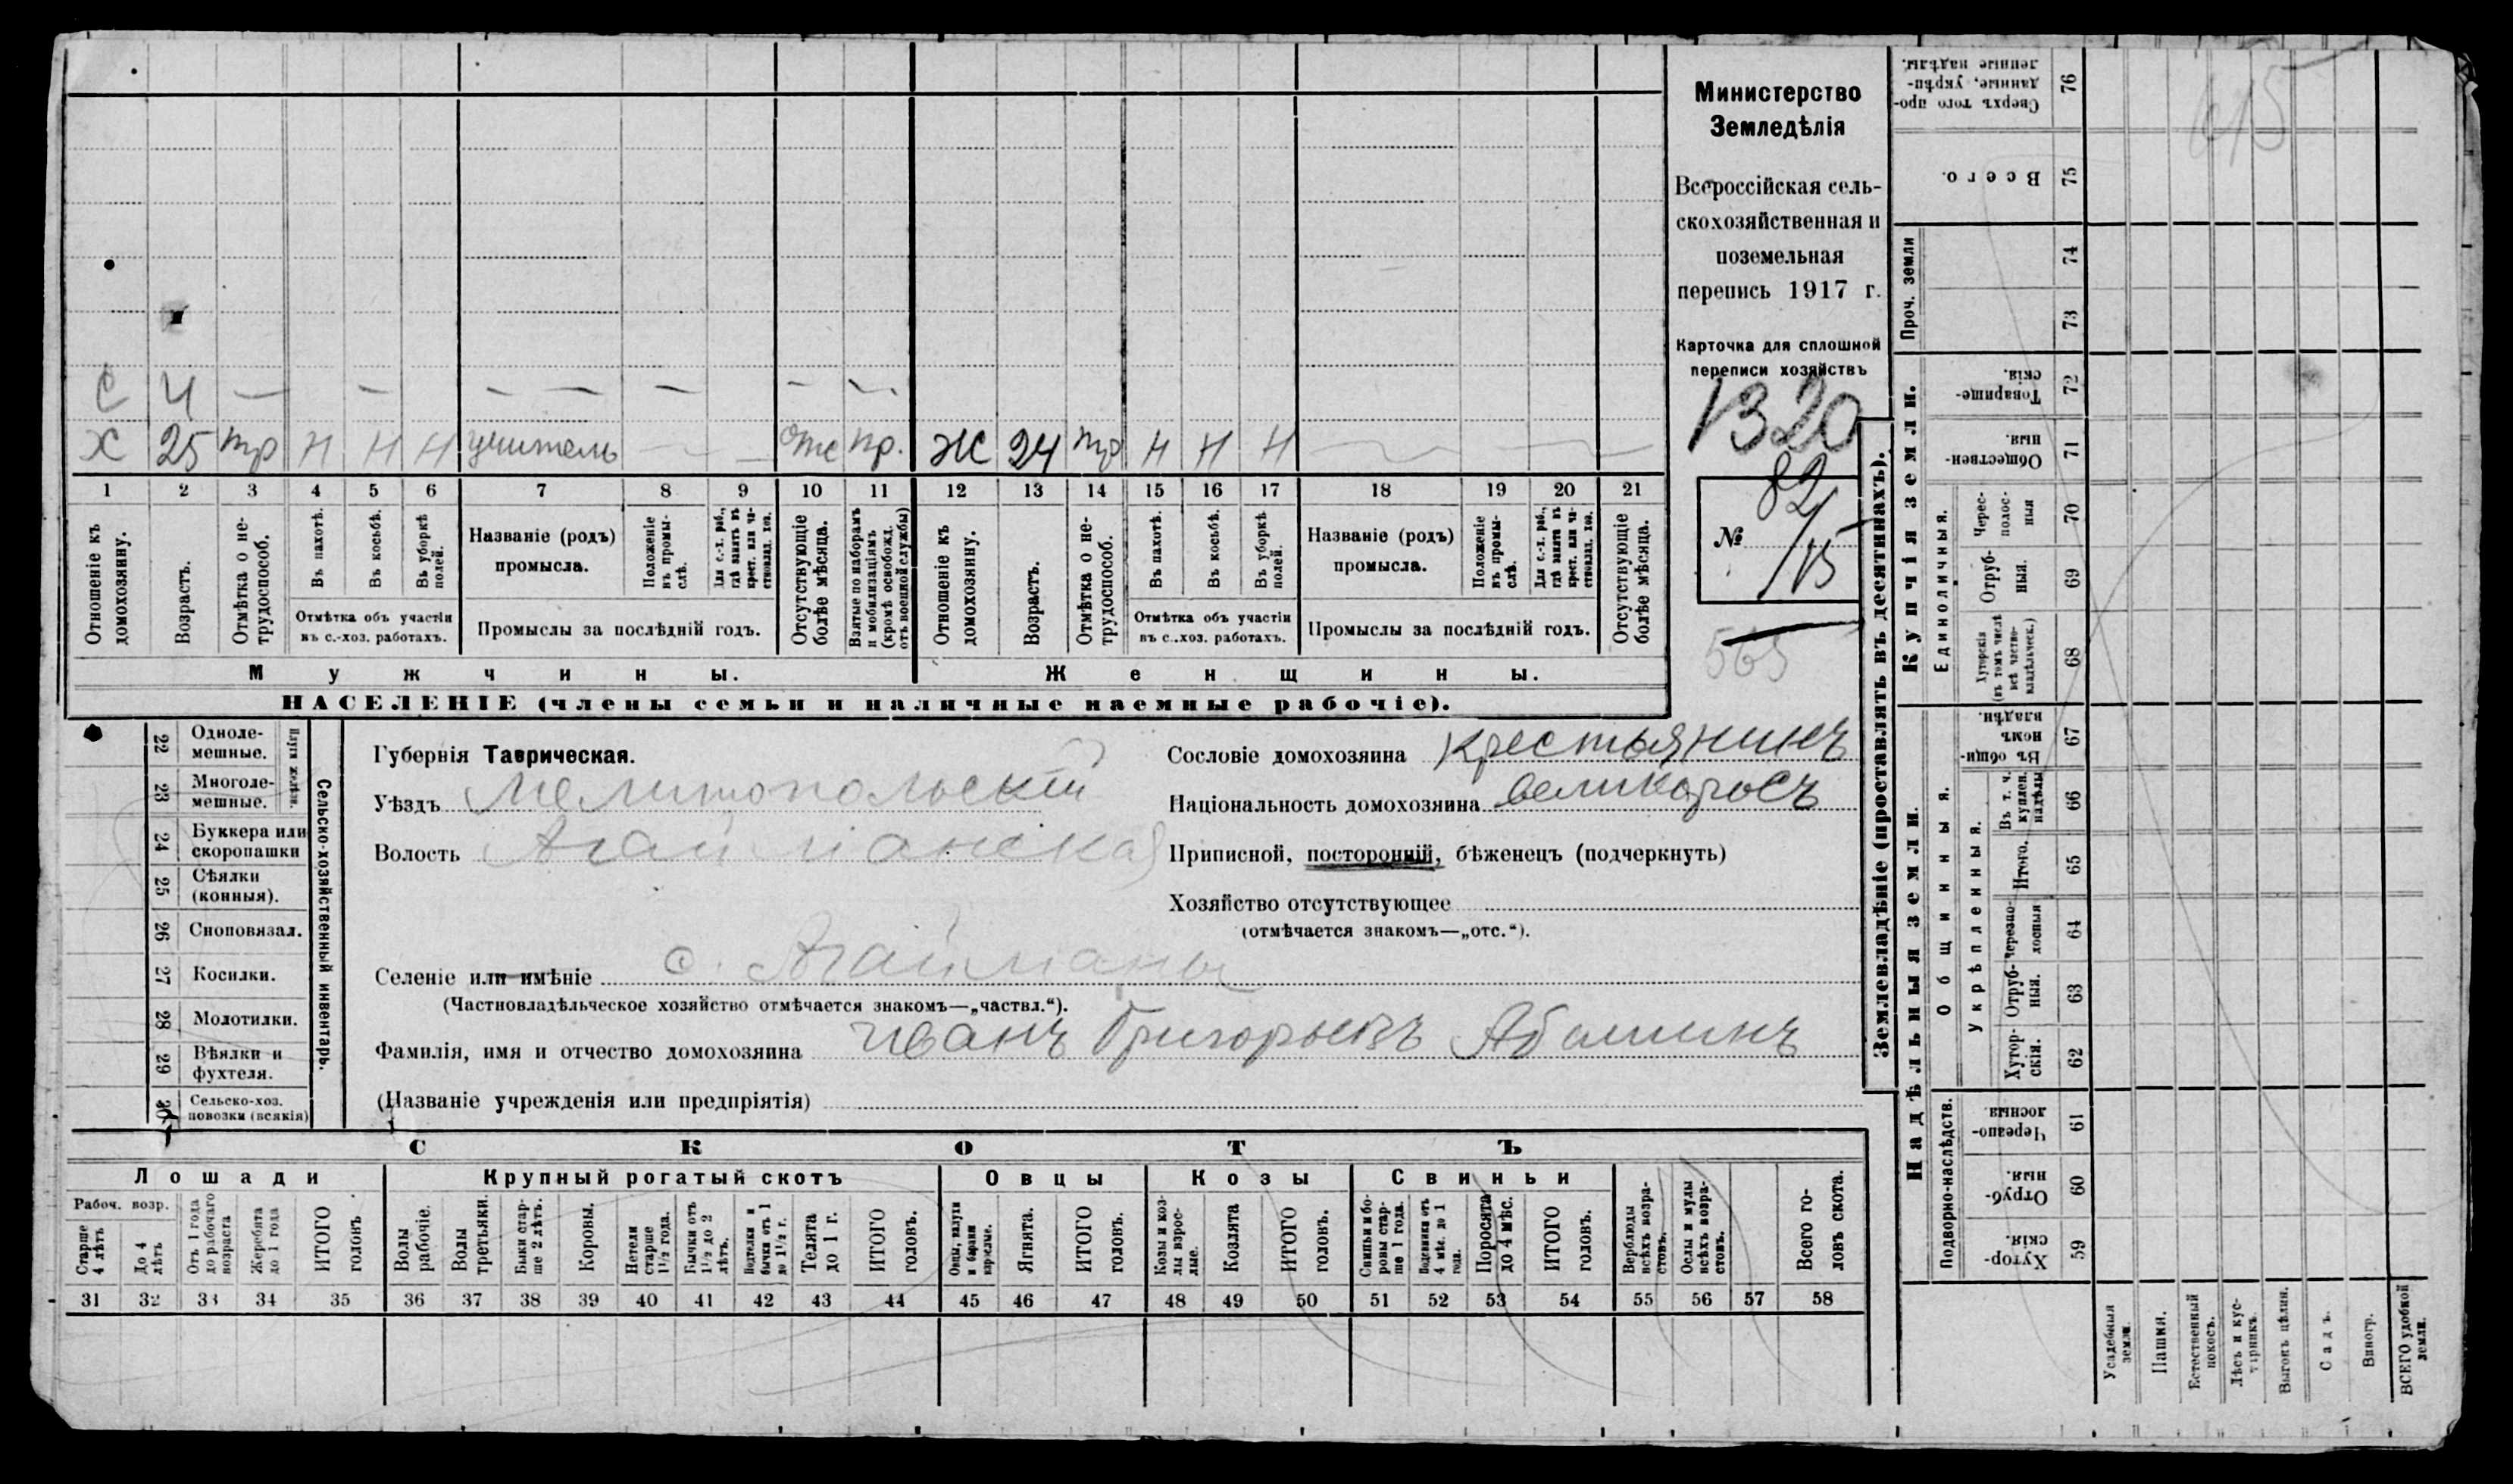 С 4 — — — — — — —
Х 25 тр Н Н Н учитель — — отс пр. Ж 24 тр Н Н Н — — — —
1 2 3 4 5 6 7 8 9 10 11 12 13 14 15 16 17 18 19 20 21
Отношеніе къ домохозяину.
Возрастъ.
Отмѣтка о не-трудоспособ.
Въ пахотѣ.
Въ косьбѣ.
Въ уборкѣ полей.
Отмѣтка объ участіи
въ с.-хоз. работахъ.
Названіе (родъ)
промысла.
Положеніе въ промы-слѣ.
Для с.-х. раб., гдѣ занятъ въ крест. или ча-стновлад. хоз.
Промыслы за послѣдній годъ.
Отсутствующіе болѣе мѣсяца.
Взятые по наборамъ и мобилизаціямъ (кромѣ освобожд. отъ военной службы)
Отношеніе къ домохозяину.
Возрастъ.
Отмѣтка о не-трудоспособ.
Въ пахотѣ.
Въ косьбѣ.
Въ уборкѣ полей.
Отмѣтка объ участіи
въ с..хоз. работахъ.
Названіе (родъ)
промысла.
Положеніе въ промы-слѣ.
Для с.-х. раб., гдѣ занятъ въ крест. или ча-стновлад. хоз.
Промыслы за послѣдній годъ.
Отсутствующіе болѣе мѣсяца.
Мужчины.
Женщины.
НАСЕЛЕНІЕ (члены семьи и наличные наемные рабочіе).
Министерство
Земледѣлія
Всероссійская сель-
скохозяйственная и
поземельная
перепись 1917 г.
Карточка для сплошной
переписи хозяйствъ
1320
№ 82/15
565
22 Одноле-мешные.
23 Многоле-мешные.
Плуги желѣзн.
24 Буккера или скоропашки
25 Сѣялки (конныя).
26 Сноповязал.
27 Косилки.
28 Молотилки.
29 Вѣялки и фухтеля.
30 Сельско-хоз. повозки (всякія)
Сельско-хозяйственный инвентарь.
Губернія Таврическая.
Уѣздъ Мелитопольскій
Волость Агайманская
Селеніе или имѣніе с. Агайманы
(Частновладѣльческое хозяйство отмѣчается знакомъ—„частвл.“).
Фамилія, имя и отчество домохозяина Иванъ Григорьевъ Абашинъ
(Названіе учрежденія или предпріятія)
Сословіе домохозяина крестьянинъ
Національность домохозяина великоросъ
Приписной, посторонній, бѣженецъ (подчеркнуть)
Хозяйство отсутствующее
(отмѣчается знакомъ—„отс.“).
СКОТЪ
Лошади
Крупный рогатый скотъ
Овцы
Козы
Свиньи
Рабоч. возр.
Старше 4 лѣтъ
До 4 лѣтъ
Отъ 1 года до рабочаго возраста
Жеребята до 1 года
ИТОГО головъ
Волы рабочіе.
Волы третьяки.
Быки стар-ше 2 лѣтъ.
Коровы.
Нетели старше 1½ года.
Бычки отъ 1½ до 2 лѣтъ.
Подтелки и бычки отъ 1 до 1½ г.
Телята до 1 г.
ИТОГО головъ.
Овцы, валухи и бараны взрослые.
Ягнята.
ИТОГО головъ.
Козы и коз-лы взрос-лые.
Козлята
ИТОГО головъ.
Свиньи и бо-ровы стар-ше 1 года.
Подсвинки отъ 4 мѣс. до 1 года.
Поросята до 4 мѣс.
ИТОГО головъ.
Верблюды всѣхъ возра-стовъ.
Ослы и мулы всѣхъ возра-стовъ.
Всего го-ловъ скота.
31 32 33 34 35 36 37 38 39 40 41 42 43 44 45 46 47 48 49 50 51 52 53 54 55 56 57 58
Землевладѣніе (проставлять въ десятинахъ).
615
Сверхъ того про-данные, укрѣп-ленные надѣлы. 76
Всего. 75
Проч. земли
74
73
Купчія земли.
Товарище-скія. 72
Обществен-ныя. 71
Единоличныя.
Черес-полос-ныя 70
Отруб-ныя. 69
Хуторскія (въ томъ числѣ всѣ частно-владѣльческ.) 68
Надѣльныя земли.
Общинныя.
Въ общи-номъ владѣн. 67
Укрѣпленныя.
Въ т. ч. куплен. надѣлы 66
Итого. 65
Черезпо-лосныя 64
Отруб-ныя. 63
Хутор-скія. 62
Подворно-наслѣдств.
Черезпо-лосныя 61
Отруб-ныя. 60
Хутор-скія. 59
Усадебныя земли.
Пашня.
Естественный покосъ.
Лѣсъ и кус-тарникъ.
Выгонъ цѣлин.
Садъ.
Виногр.
ВСЕГО удобной земли.